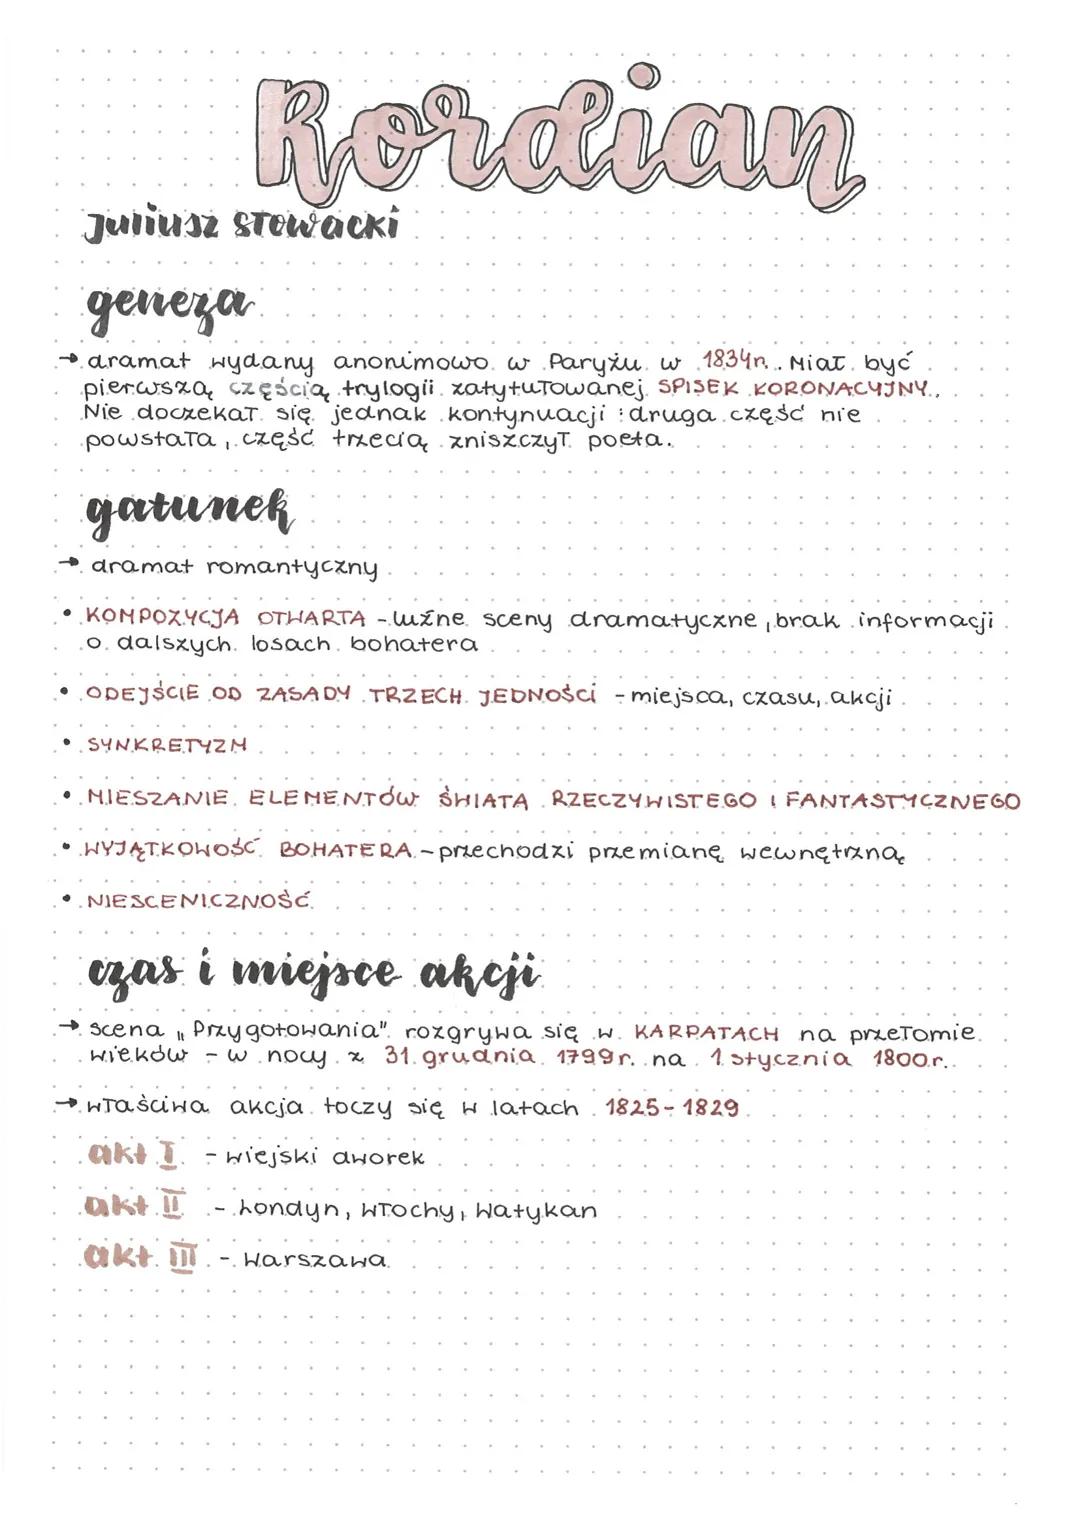 Kordian
Juliusz Słowacki
geneza
→ dramat wydany anonimowo w Paryżu w 1834r. Miał być
pierwszą częścią trylogii zatytułowanej SPISEK KORONACYJNY.
Nie doczekał się jednak kontynuacji: druga część nie
powstała, część trzecią zniszczył poeta.
gatunek
→ dramat romantyczny
• KOMPOZYCJA OTWARTA - luźne sceny dramatyczne, brak informacji
o dalszych losach bohatera
• ODEJŚCIE OD ZASADY TRZECH JEDNOŚCI - miejsca, czasu, akcji
• SYNKRETYZM
• MIESZANIE ELEMENTÓW ŚWIATA RZECZYWISTEGO I FANTASTYCZNEGO
• WYJĄTKOWOŚĆ BOHATERA - przechodzi przemianę wewnętrzną
• NIESCENICZNOŚĆ
czas i miejsce akcji
→ scena „Przygotowania" rozgrywa się w KARPATACH na przełomie
wieków - w nocy z 31 grudnia 1799r. na 1 stycznia 1800r.
→ właściwa akcja toczy się w latach 1825-1829
akt I - wiejski dworek
akt II - Londyn, Włochy, Watykan
akt III - Warszawa